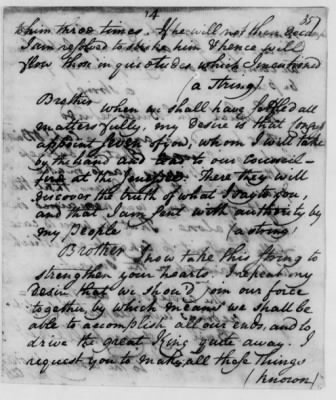 14
35
to him three times. If he will not then
I am resolved to strike him & hence will
flow those inquietudes which I mentioned
(a String)
Brother
When we shall have settled all
matters fully, my desire is that
appoint seven of you, whom I will take
by the hand and lead to our council-
fire at the There they will
discover the truth of what I say to you,
and that I am sent with authority by
my People (a string)
Brother I now take this string to
strengthen your hearts. I repeat my
desire that we should join our force
together, by which means we shall be
able to accomplish all our ends, and to
drive the great King quite away. I
request you to make all these things
(known)